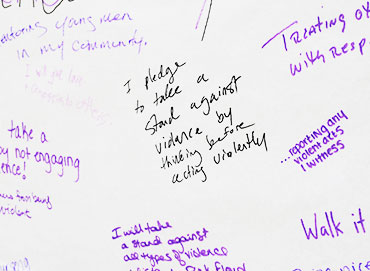 mentoring young men
in my community.
I will give love
take a
by not engaging
violence!
I pledge
to take a
stand against
violence by
thinking before
acting violently
TREATING
WITH RESP
...reporting any
violent acts
I witness
I will take
a stand against
all types of violence
Pink Floyd
Walk it
being nice